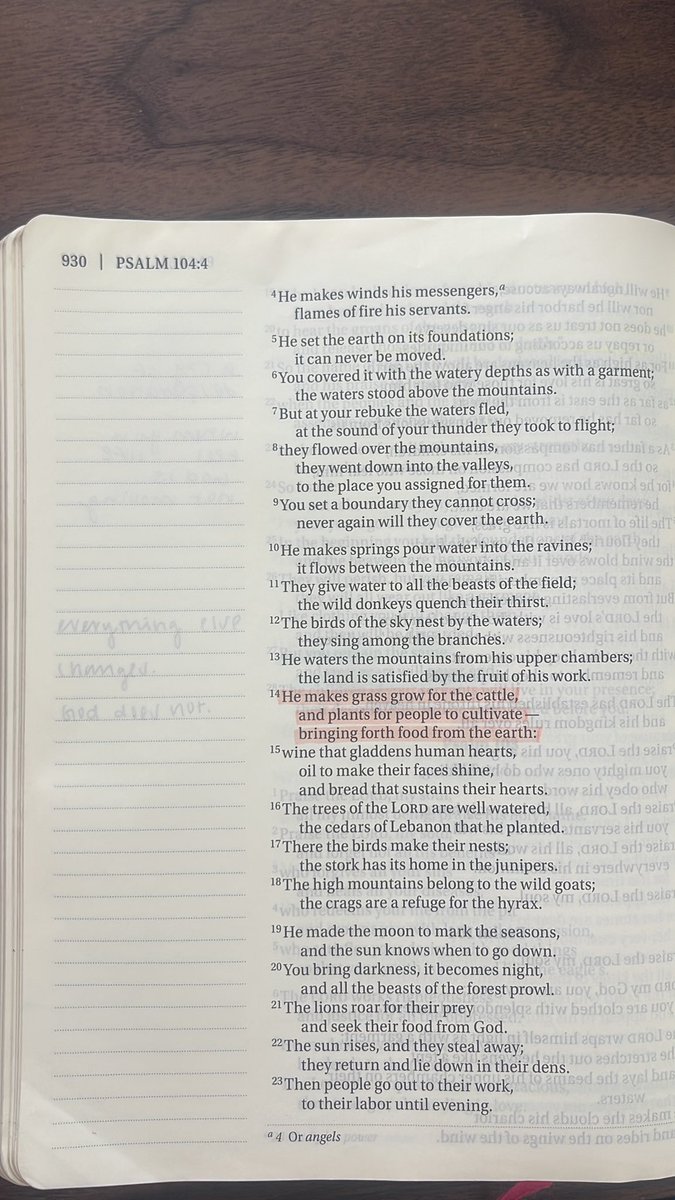 930 | PSALM 104:4
⁴He makes winds his messengers,ᵃ
flames of fire his servants.
⁵He set the earth on its foundations;
it can never be moved.
⁶You covered it with the watery depths as with a garment;
the waters stood above the mountains.
⁷But at your rebuke the waters fled,
at the sound of your thunder they took to flight;
⁸they flowed over the mountains,
they went down into the valleys,
to the place you assigned for them.
⁹You set a boundary they cannot cross;
never again will they cover the earth.
¹⁰He makes springs pour water into the ravines;
it flows between the mountains.
¹¹They give water to all the beasts of the field;
the wild donkeys quench their thirst.
¹²The birds of the sky nest by the waters;
they sing among the branches.
¹³He waters the mountains from his upper chambers;
the land is satisfied by the fruit of his work.
¹⁴He makes grass grow for the cattle,
and plants for people to cultivate—
bringing forth food from the earth:
¹⁵wine that gladdens human hearts,
oil to make their faces shine,
and bread that sustains their hearts.
¹⁶The trees of the LORD are well watered,
the cedars of Lebanon that he planted.
¹⁷There the birds make their nests;
the stork has its home in the junipers.
¹⁸The high mountains belong to the wild goats;
the crags are a refuge for the hyrax.
¹⁹He made the moon to mark the seasons,
and the sun knows when to go down.
²⁰You bring darkness, it becomes night,
and all the beasts of the forest prowl.
²¹The lions roar for their prey
and seek their food from God.
²²The sun rises, and they steal away;
they return and lie down in their dens.
²³Then people go out to their work,
to their labor until evening.
ᵃ 4 Or angels
everything else
changes.
God does not.